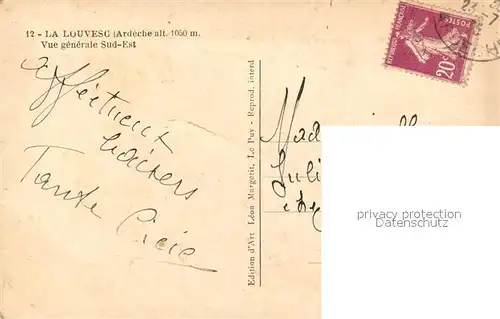 12 - LA LOUVESC (Ardèche alt. 1050 m.
Vue générale Sud-Est
affectment
baisers
Tante Cicie
Edition d'Art Léon Margerit, Le Puy - Reprod. interd
REPUBLIQUE FRANÇAISE
POSTES
20c
privacy protection
Datenschutz